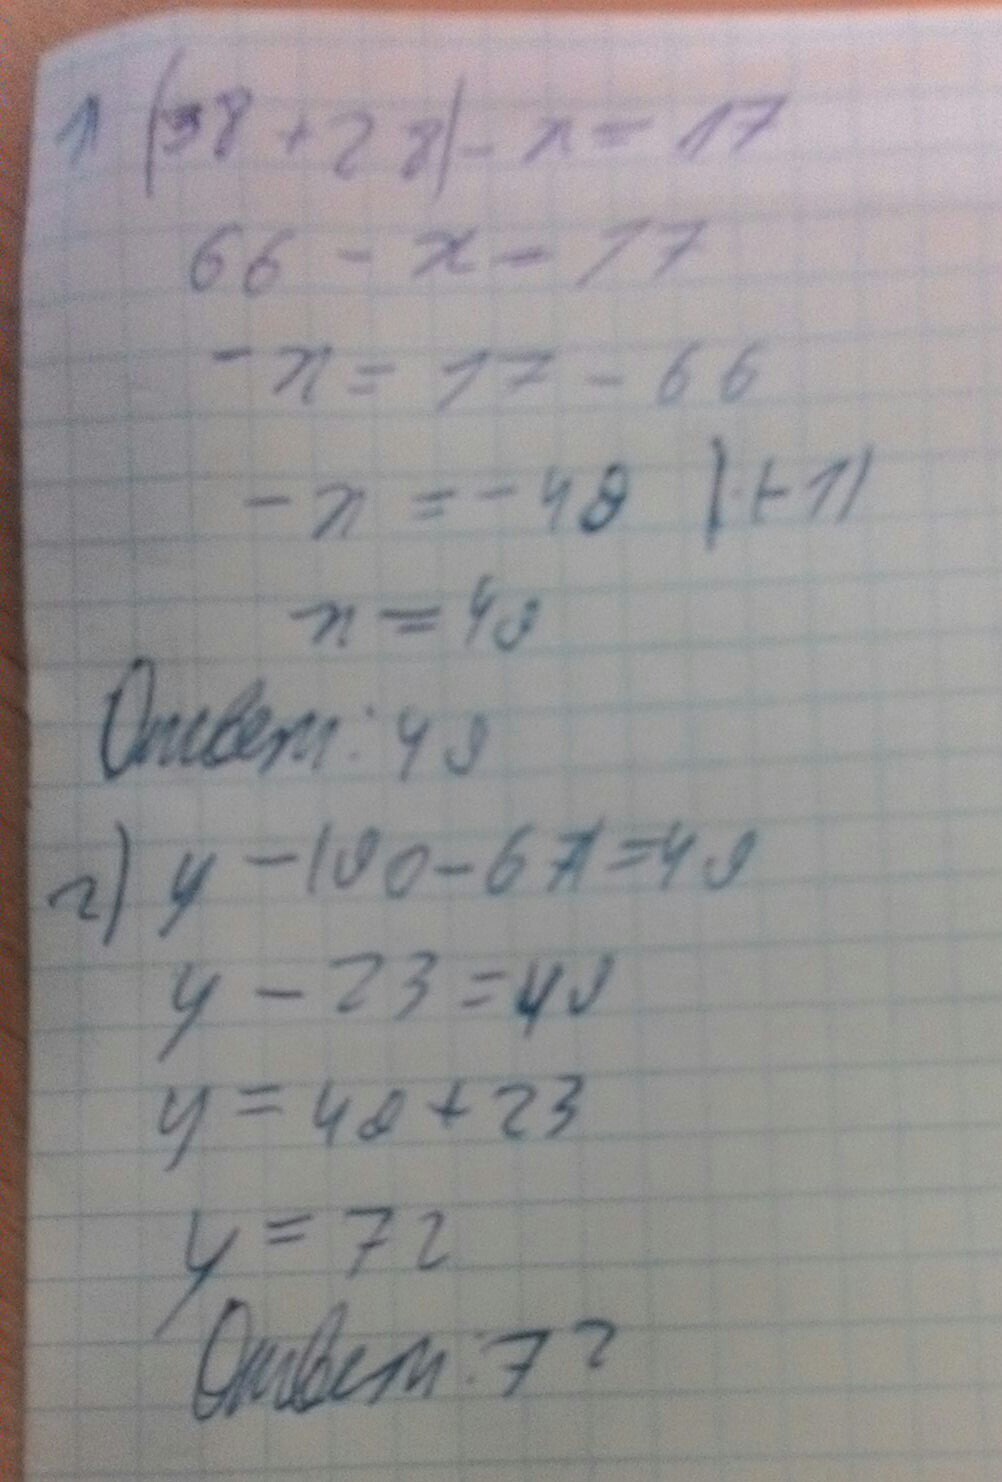 1) (38 + 28) - x = 17
66 - x = 17
-x = 17 - 66
-x = -49 |·(-1)
x = 49
Ответ: 49
2) y - 190 - 67) = 49
y - 23 = 49
y = 49 + 23
y = 72
Ответ: 72